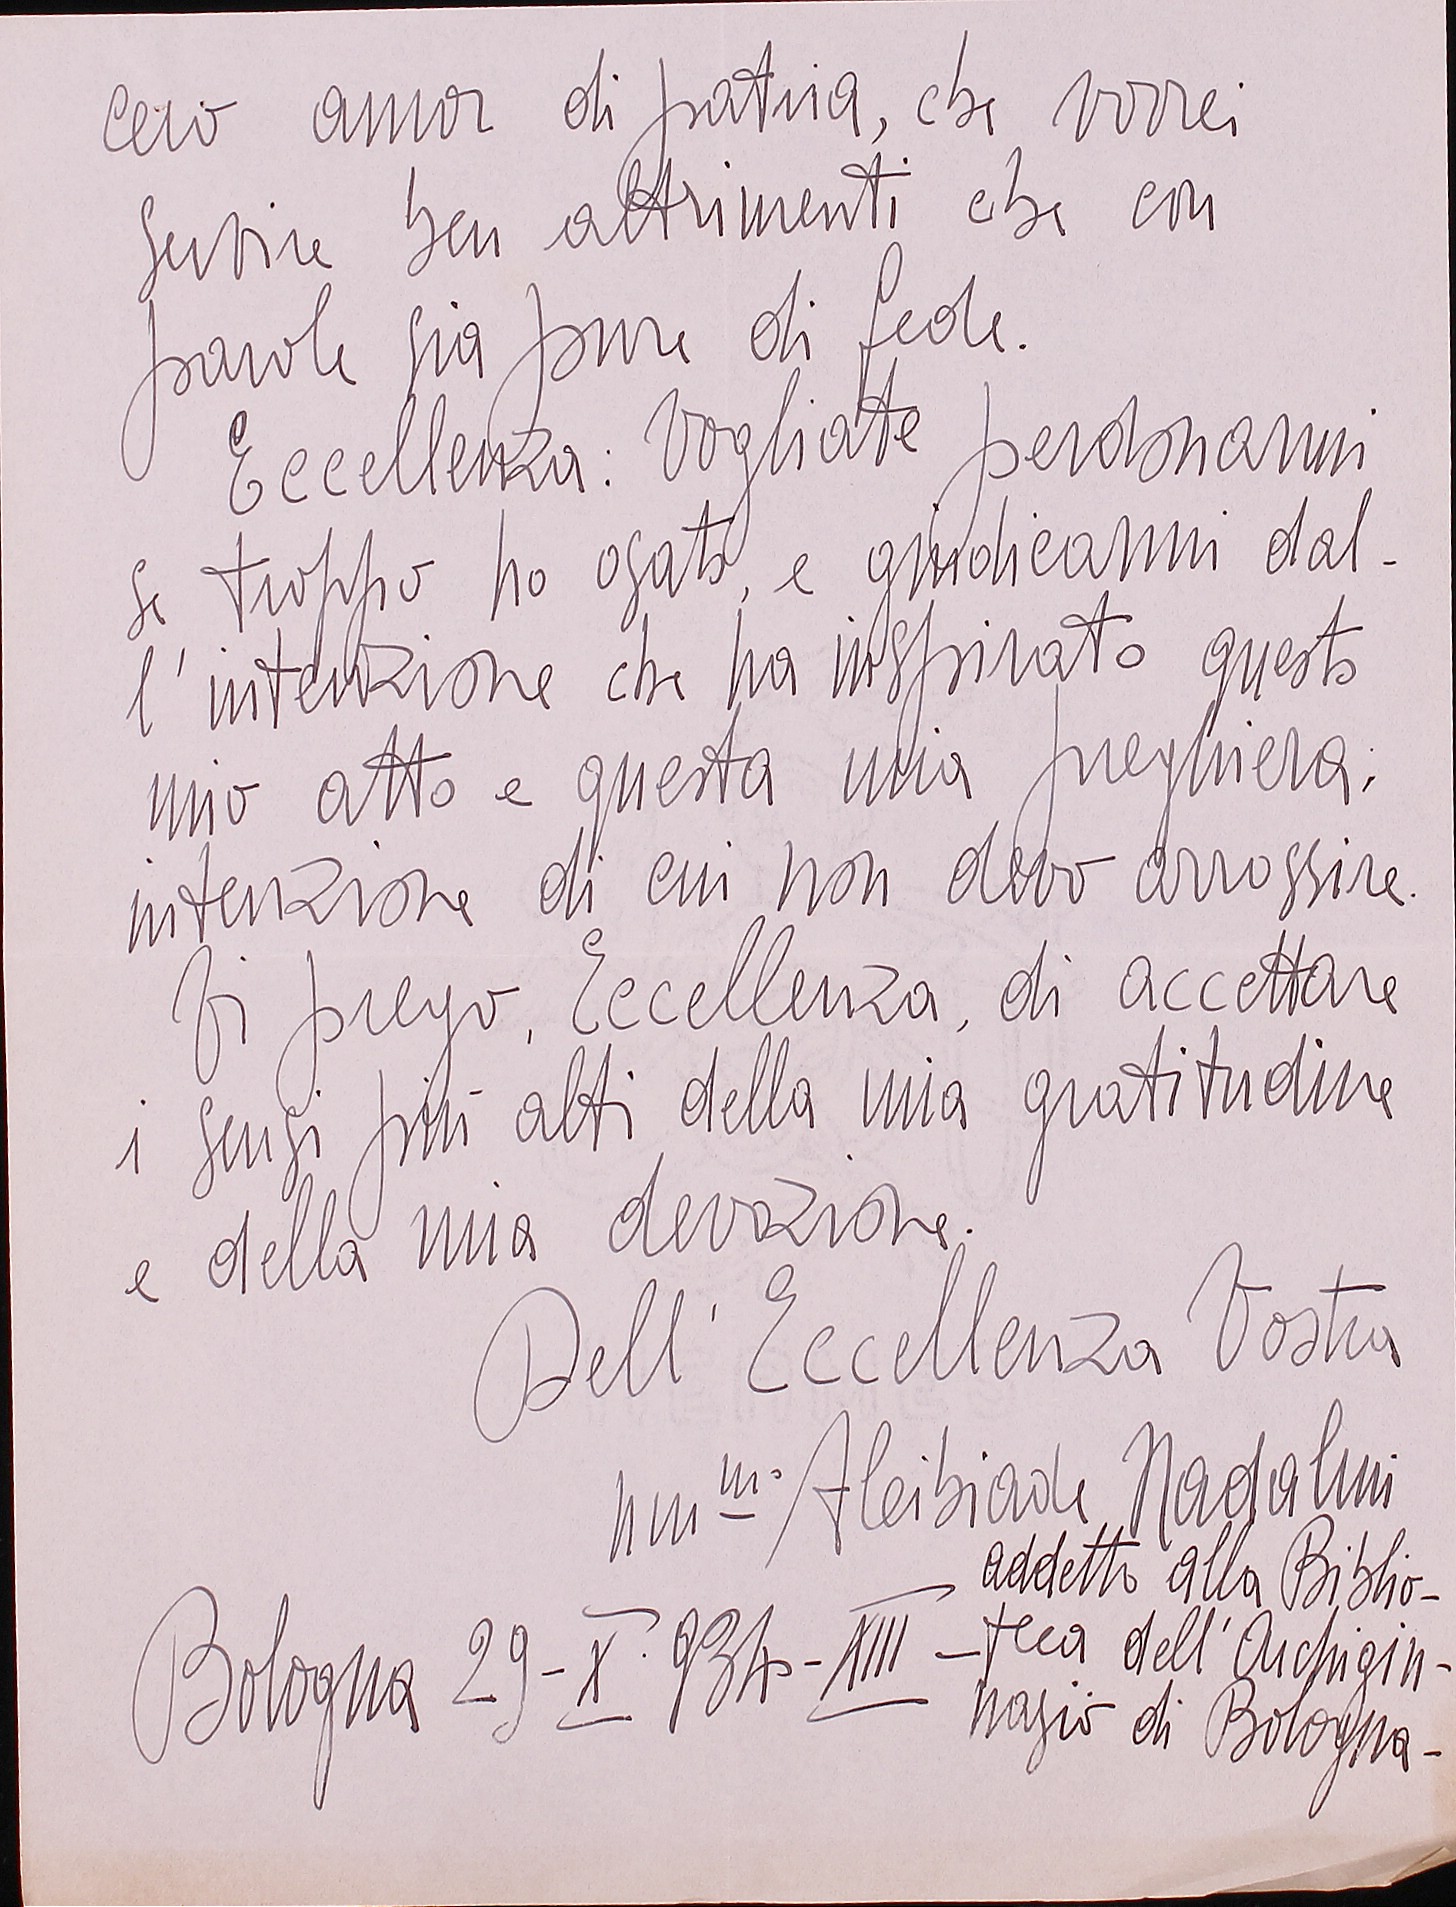 cero amor di patria, che vorrei
servire ben altrimenti che con
parole sia pure di fede.
Eccellenza: vogliate perdonarmi
se troppo ho osato, e giudicarmi dal-
l'intenzione che ha inspirato questo
mio atto e questa mia preghiera;
intenzione di cui non devo arrossire.
Vi prego, Eccellenza, di accettare
i sensi più alti della mia gratitudine
e della mia devozione.
Dell'Eccellenza Vostra
umm. Alcibiade Nadalini
addetto alla Biblio-
Bologna 29-X-934-XIII - teca dell'Archigin-
nasio di Bologna-